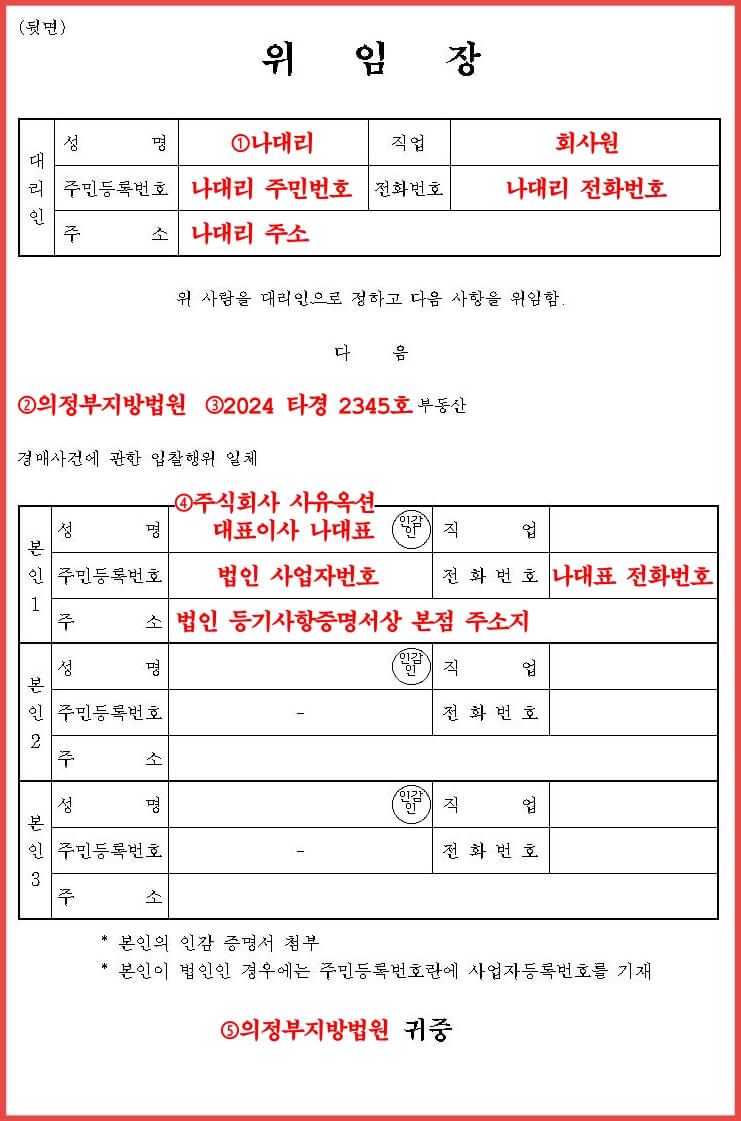 (뒷면)
위 임 장
대리인
성 명 ①나대리 직업 회사원
주민등록번호 나대리 주민번호 전화번호 나대리 전화번호
주 소 나대리 주소
위 사람을 대리인으로 정하고 다음 사항을 위임함.
다 음
②의정부지방법원 ③2024 타경 2345호 부동산
경매사건에 관한 입찰행위 일체
본인1
④주식회사 사유옥션
성 명 대표이사 나대표 인감인 직 업
주민등록번호 법인 사업자번호 전화번호 나대표 전화번호
주 소 법인 등기사항증명서상 본점 주소지
본인2
성 명 인감인 직 업
주민등록번호 - 전화번호
주 소
본인3
성 명 인감인 직 업
주민등록번호 - 전화번호
주 소
* 본인의 인감 증명서 첨부
* 본인이 법인인 경우에는 주민등록번호란에 사업자등록번호를 기재
⑤의정부지방법원 귀중